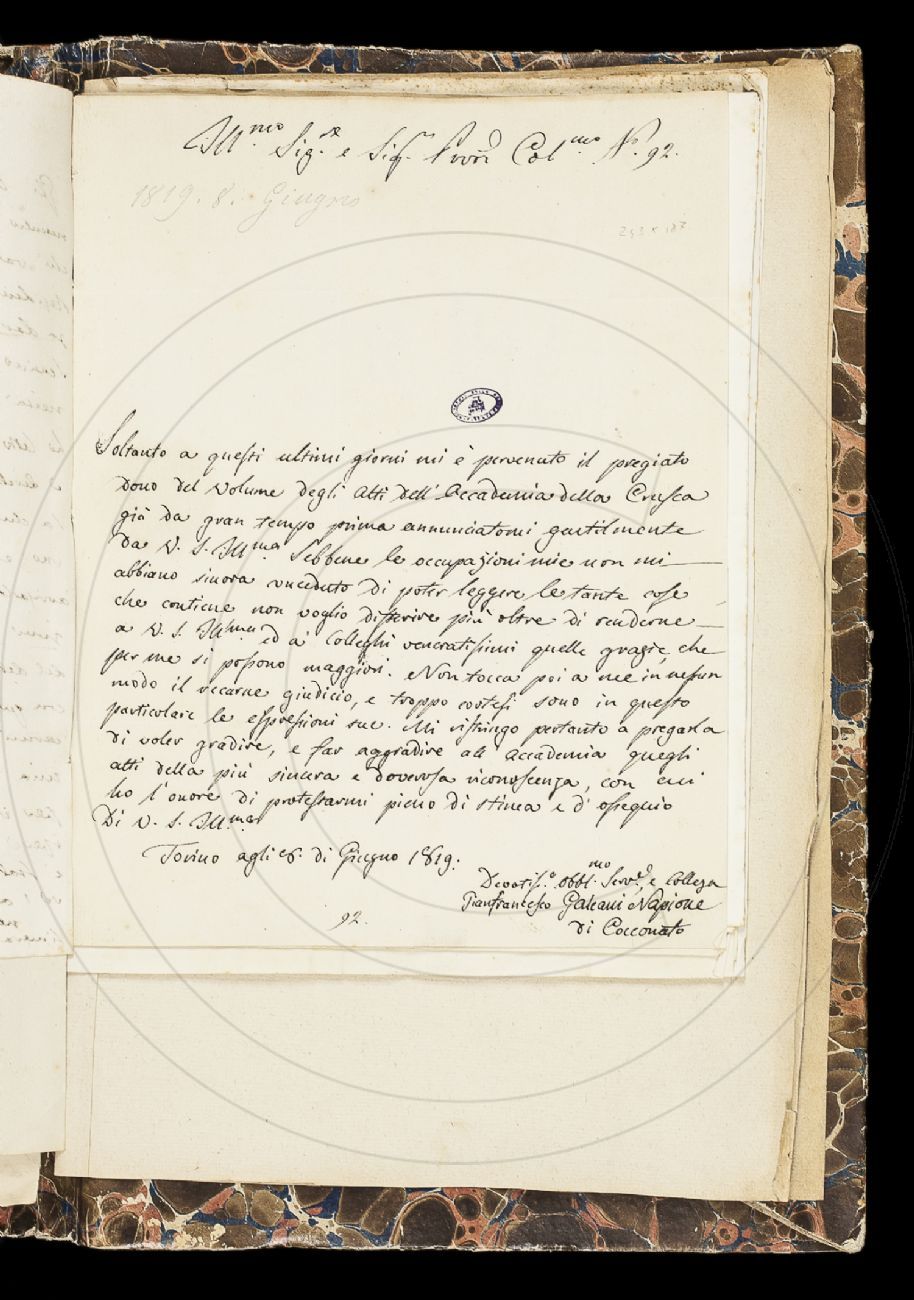 Ill.mo Sig.r e Sig.r Pron Col.mo N.o 92.
1819. 8. Giugno
243 x 187
Soltanto a questi ultimi giorni mi è pervenuto il pregiato
Dono del volume degli Atti dell'Accademia della Crusca
già da gran tempo prima annunciatomi gentilmente
da V. S. Ill.ma Sebbene le occupazioni mie non mi
abbiano sinora conceduto di poter leggere le tante cose
che contiene non voglio differire più oltre di renderne
a V. S. Ill.ma ed a' Colleghi veneratissimi quelle grazie, che
per me si possono maggiori. Non tocca poi a me in nessun
modo il recarne giudicio, e troppo cortesi sono in questo
particolare le espressioni sue. Mi ristringo pertanto a pregarla
di voler gradire, e far aggradire all'Accademia quegli
atti della più sincera e doverosa riconoscenza, con cui
ho l'onore di protestarmi pieno di stima e d'ossequio
Di V. S. Ill.ma
Torino agli 8. di Giugno 1819.
Devotis.o obbl.mo Serv.e, e Collega
Gianfrancesco Galeani Napione
di Cocconato
92.